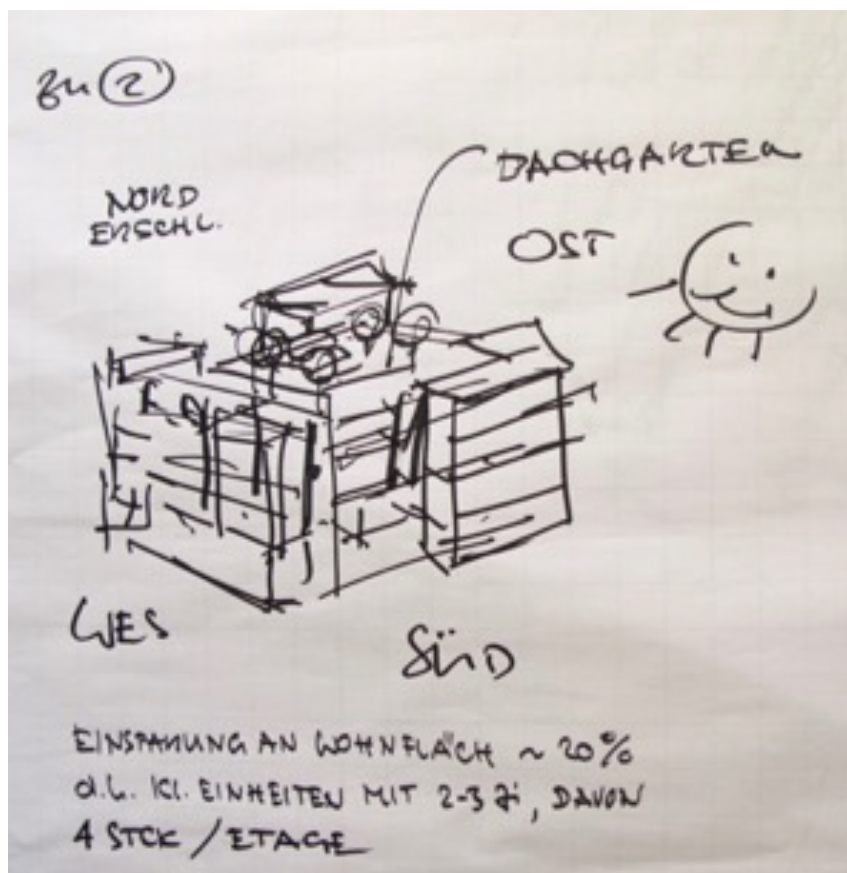 zu ②
DACHGARTEN
NORD
ERSCHL.
OST
WES
SÜD
EINSPARUNG AN WOHNFLÄCH ~ 20%
d.h. KL. EINHEITEN MIT 2-3 Zi, DAVON
4 STCK / ETAGE